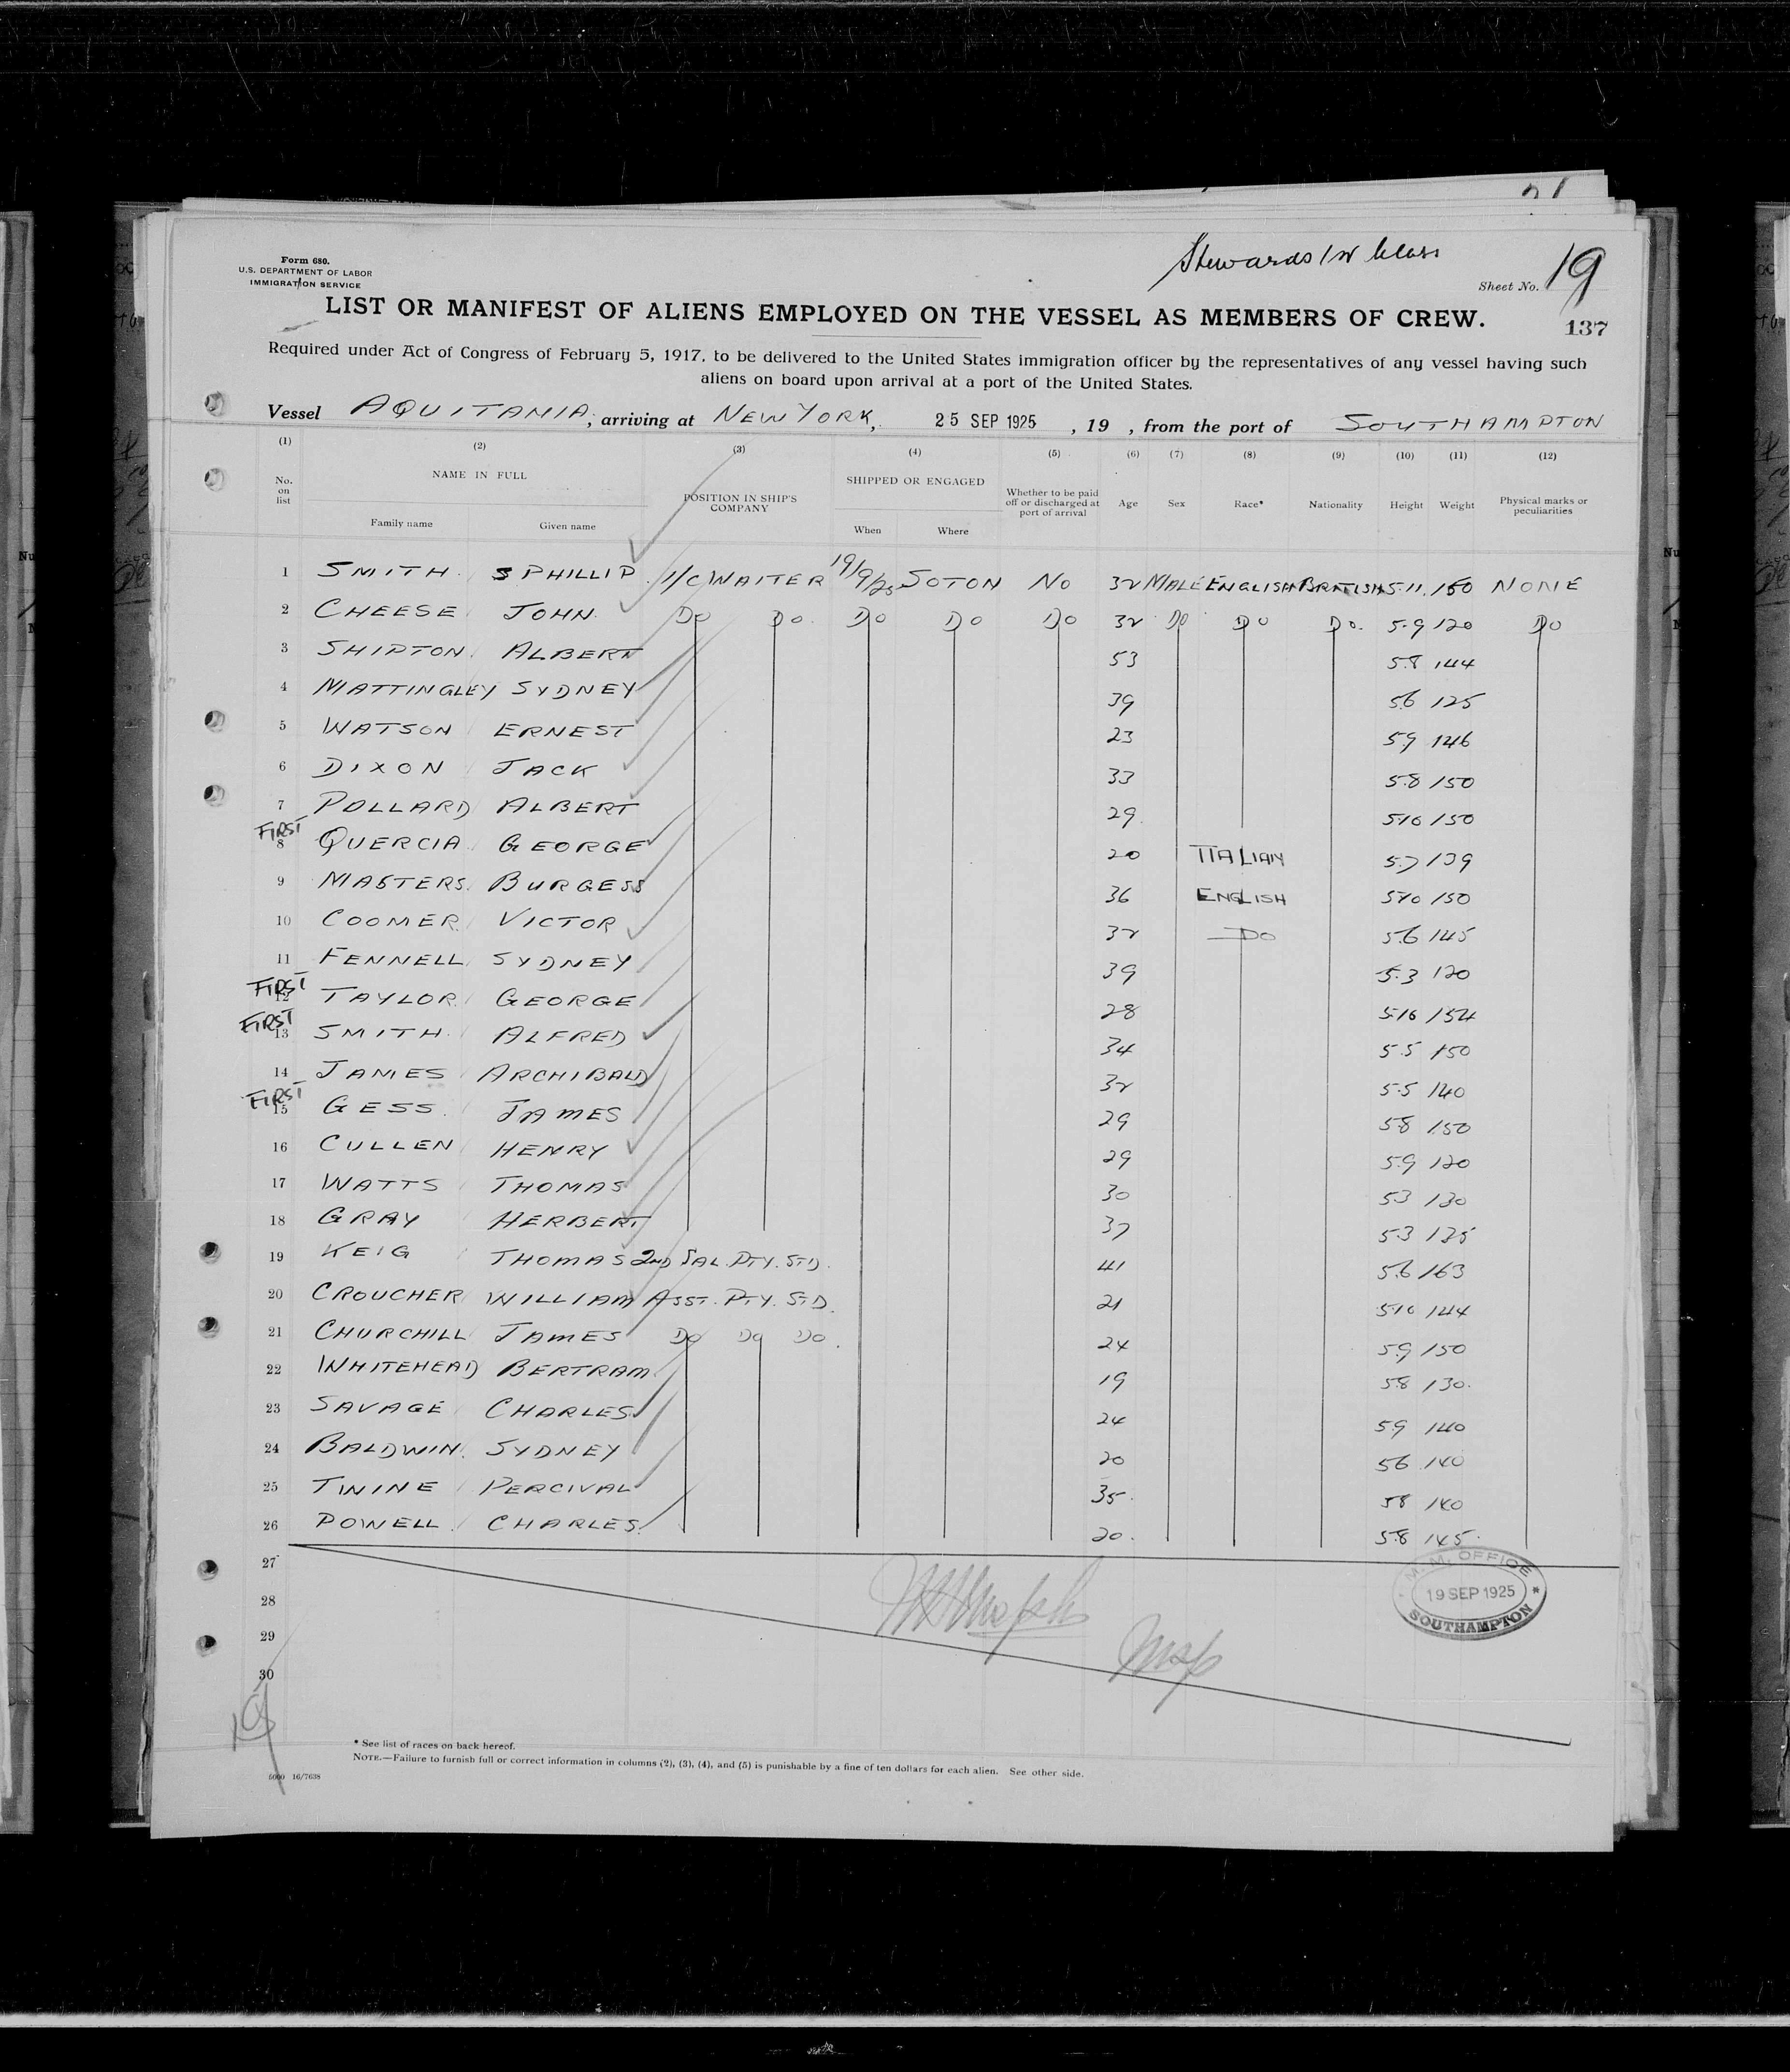 Stewards 1st Class
Form 680.
U.S. DEPARTMENT OF LABOR
IMMIGRATION SERVICE
Sheet No. 19
LIST OR MANIFEST OF ALIENS EMPLOYED ON THE VESSEL AS MEMBERS OF CREW.
137
Required under Act of Congress of February 5, 1917, to be delivered to the United States immigration officer by the representatives of any vessel having such
aliens on board upon arrival at a port of the United States.
Vessel AQUITANIA, arriving at NEW YORK, 25 SEP 1925, 19 , from the port of SOUTHAMPTON
(1) (2) (3) (4) (5) (6) (7) (8) (9) (10) (11) (12)
No. on list NAME IN FULL Family name Given name POSITION IN SHIP'S COMPANY SHIPPED OR ENGAGED When Where Whether to be paid off or discharged at port of arrival Age Sex Race* Nationality Height Weight Physical marks or peculiarities
1 SMITH S PHILLIP 1/C WAITER 19/9/25 SOTON NO 32 MALE ENGLISH BRITISH 5.11. 150 NONE
2 CHEESE JOHN DO DO. DO DO DO 32 DO DO DO. 5.9 120 DO
3 SHIPTON ALBERT 53 5.8 144
4 MATTINGLEY SYDNEY 39 5.6 125
5 WATSON ERNEST 23 5.9 146
6 DIXON JACK 33 5.8 150
7 POLLARD ALBERT 29 5.10 150
FIRST 8 QUERCIA GEORGE 20 ITALIAN 5.7 139
9 MASTERS BURGESS 36 ENGLISH 5.10 150
10 COOMER VICTOR 32 DO 5.6 145
11 FENNELL SYDNEY 39 5.3 120
FIRST 12 TAYLOR GEORGE 28 5.10 154
FIRST 13 SMITH ALFRED 34 5.5 150
14 JAMES ARCHIBALD 32 5.5 140
FIRST 15 GESS JAMES 29 5.8 150
16 CULLEN HENRY 29 5.9 120
17 WATTS THOMAS 30 5.3 130
18 GRAY HERBERT 37 5.3 125
19 KEIG THOMAS 2ND SAL. PTY. STD. 41 5.6 163
20 CROUCHER WILLIAM ASST. PTY. STD. 21 5.10 144
21 CHURCHILL JAMES DO DO DO. 24 5.9 150
22 WHITEHEAD BERTRAM 19 5.8 130.
23 SAVAGE CHARLES 24 5.9 140
24 BALDWIN SYDNEY 20 5.6 140
25 TWINE PERCIVAL 35. 5.8 140
26 POWELL CHARLES 20. 5.8 145.
27
28
29
30
M. M. OFFICE
19 SEP 1925
SOUTHAMPTON
* See list of races on back hereof.
NOTE.—Failure to furnish full or correct information in columns (2), (3), (4), and (5) is punishable by a fine of ten dollars for each alien. See other side.
5000 16/7638